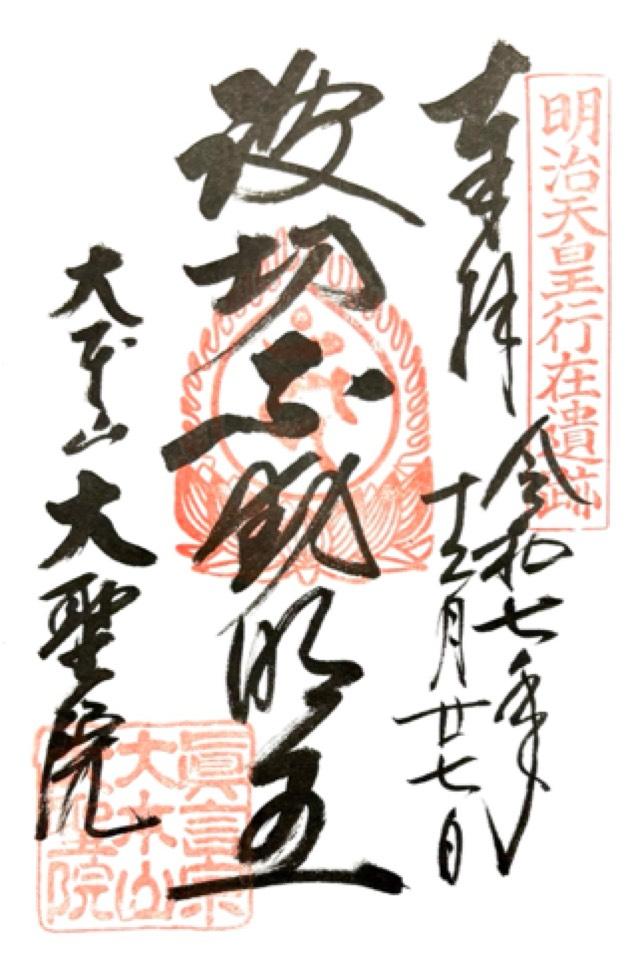 明治天皇行在遺跡
奉拝
令和七年
十二月廿七日
波切不動明王
大本山大聖院
眞言宗
大本山
大聖院